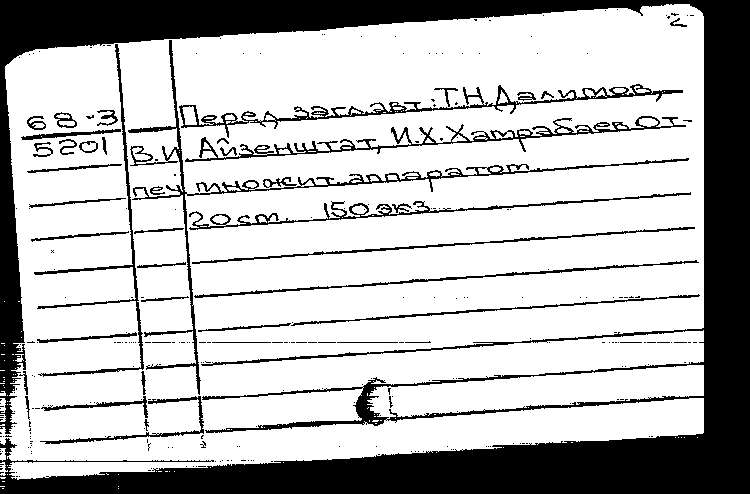 2
68-3
5201
Перед загл. авт.: Т.Н. Далимов,
В.И. Айзенштат, И.Х. Хамрабаев. От-
печ. множит. аппаратом.
20 см. 150 экз.